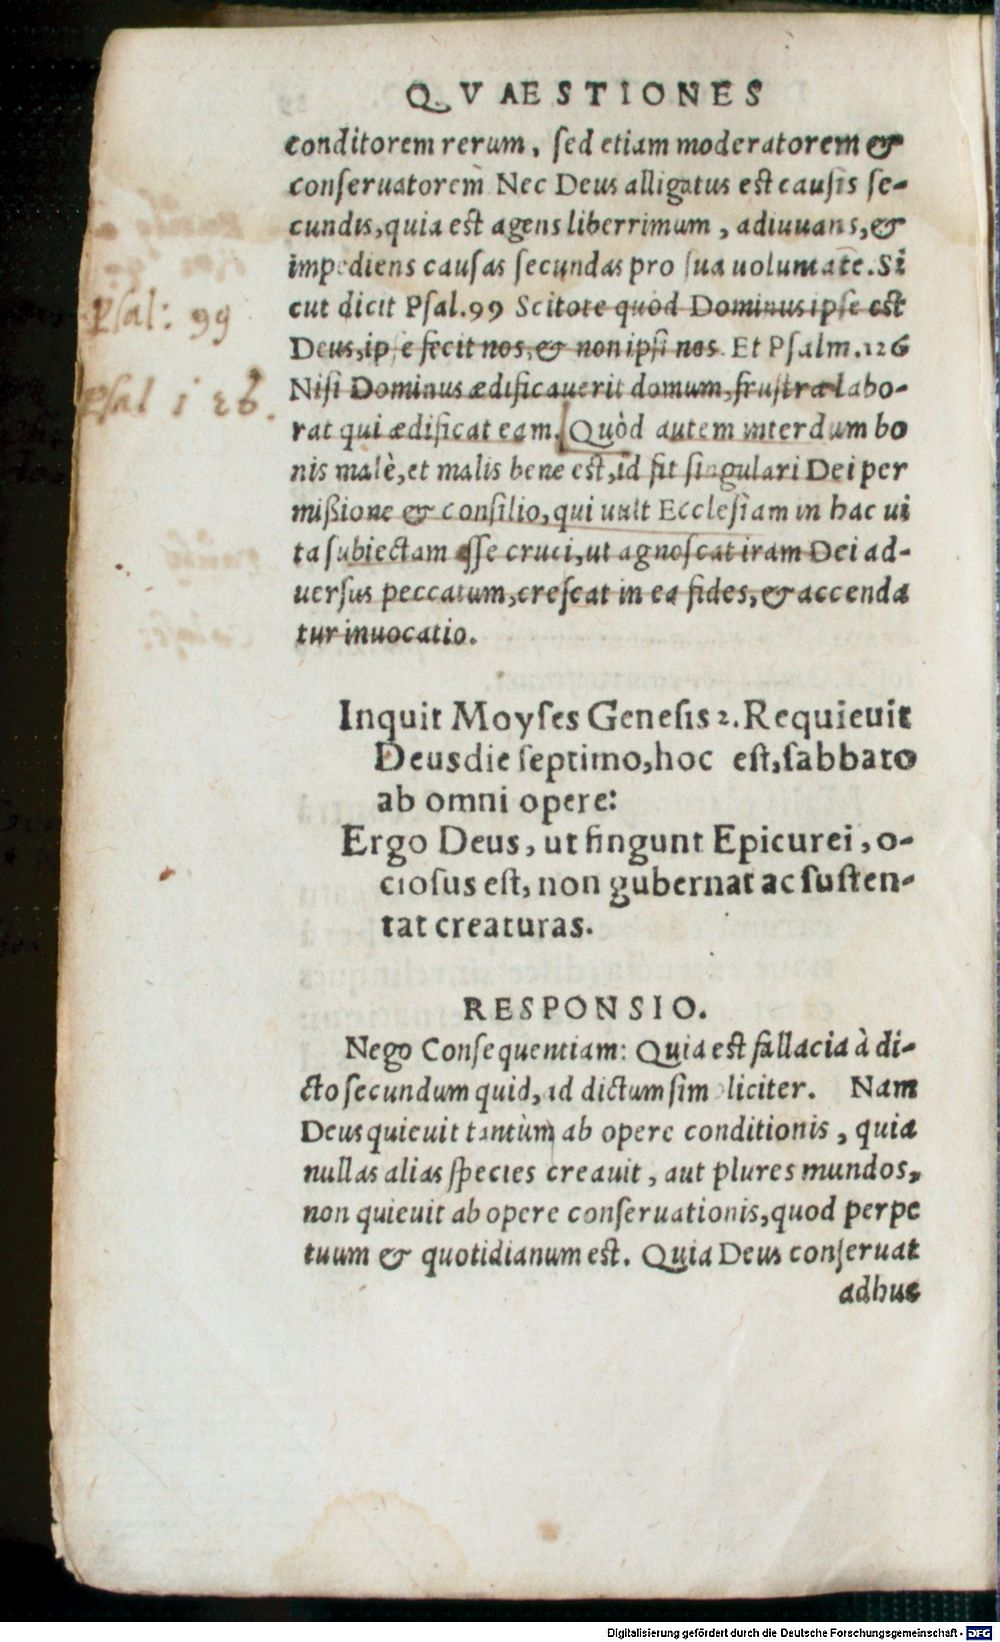 QVAESTIONES
conditorem rerum, sed etiam moderatorem &
conseruatorem̃ Nec Deus alligatus est causis se-
cundis, quia est agens liberrimum, adiuuans, &
impediens causas secundas pro sua uoluntate. Si
cut dicit Psal. 99 Scitote quòd Dominus ipse est
Deus, ipse fecit nos, & non ipsi nos. Et Psalm. 126
Nisi Dominus ædificauerit domum, frustra labo-
rat qui ædificat eam. Quòd autem interdum bo
nis malè, et malis bene est, id fit singulari Dei per
mißione & consilio, qui uult Ecclesiam in hac ui
ta subiectam esse cruci, ut agnoscat iram Dei ad-
uersus peccatum, crescat in ea fides, & accenda
tur inuocatio.
Psal: 99
Psal 126.
Inquit Moyses Genesis 2. Requieuit
Deus die septimo, hoc est, sabbato
ab omni opere:
Ergo Deus, ut fingunt Epicurei, o-
ciosus est, non gubernat ac susten-
tat creaturas.
RESPONSIO.
Nego Consequentiam: Quia est fallacia à di-
cto secundum quid, ad dictum simpliciter. Nam
Deus quieuit tantùm ab opere conditionis, quia
nullas alias species creauit, aut plures mundos,
non quieuit ab opere conseruationis, quod perpe
tuum & quotidianum est. Quia Deus conseruat
adhuc
Digitalisierung gefördert durch die Deutsche Forschungsgemeinschaft - DFG